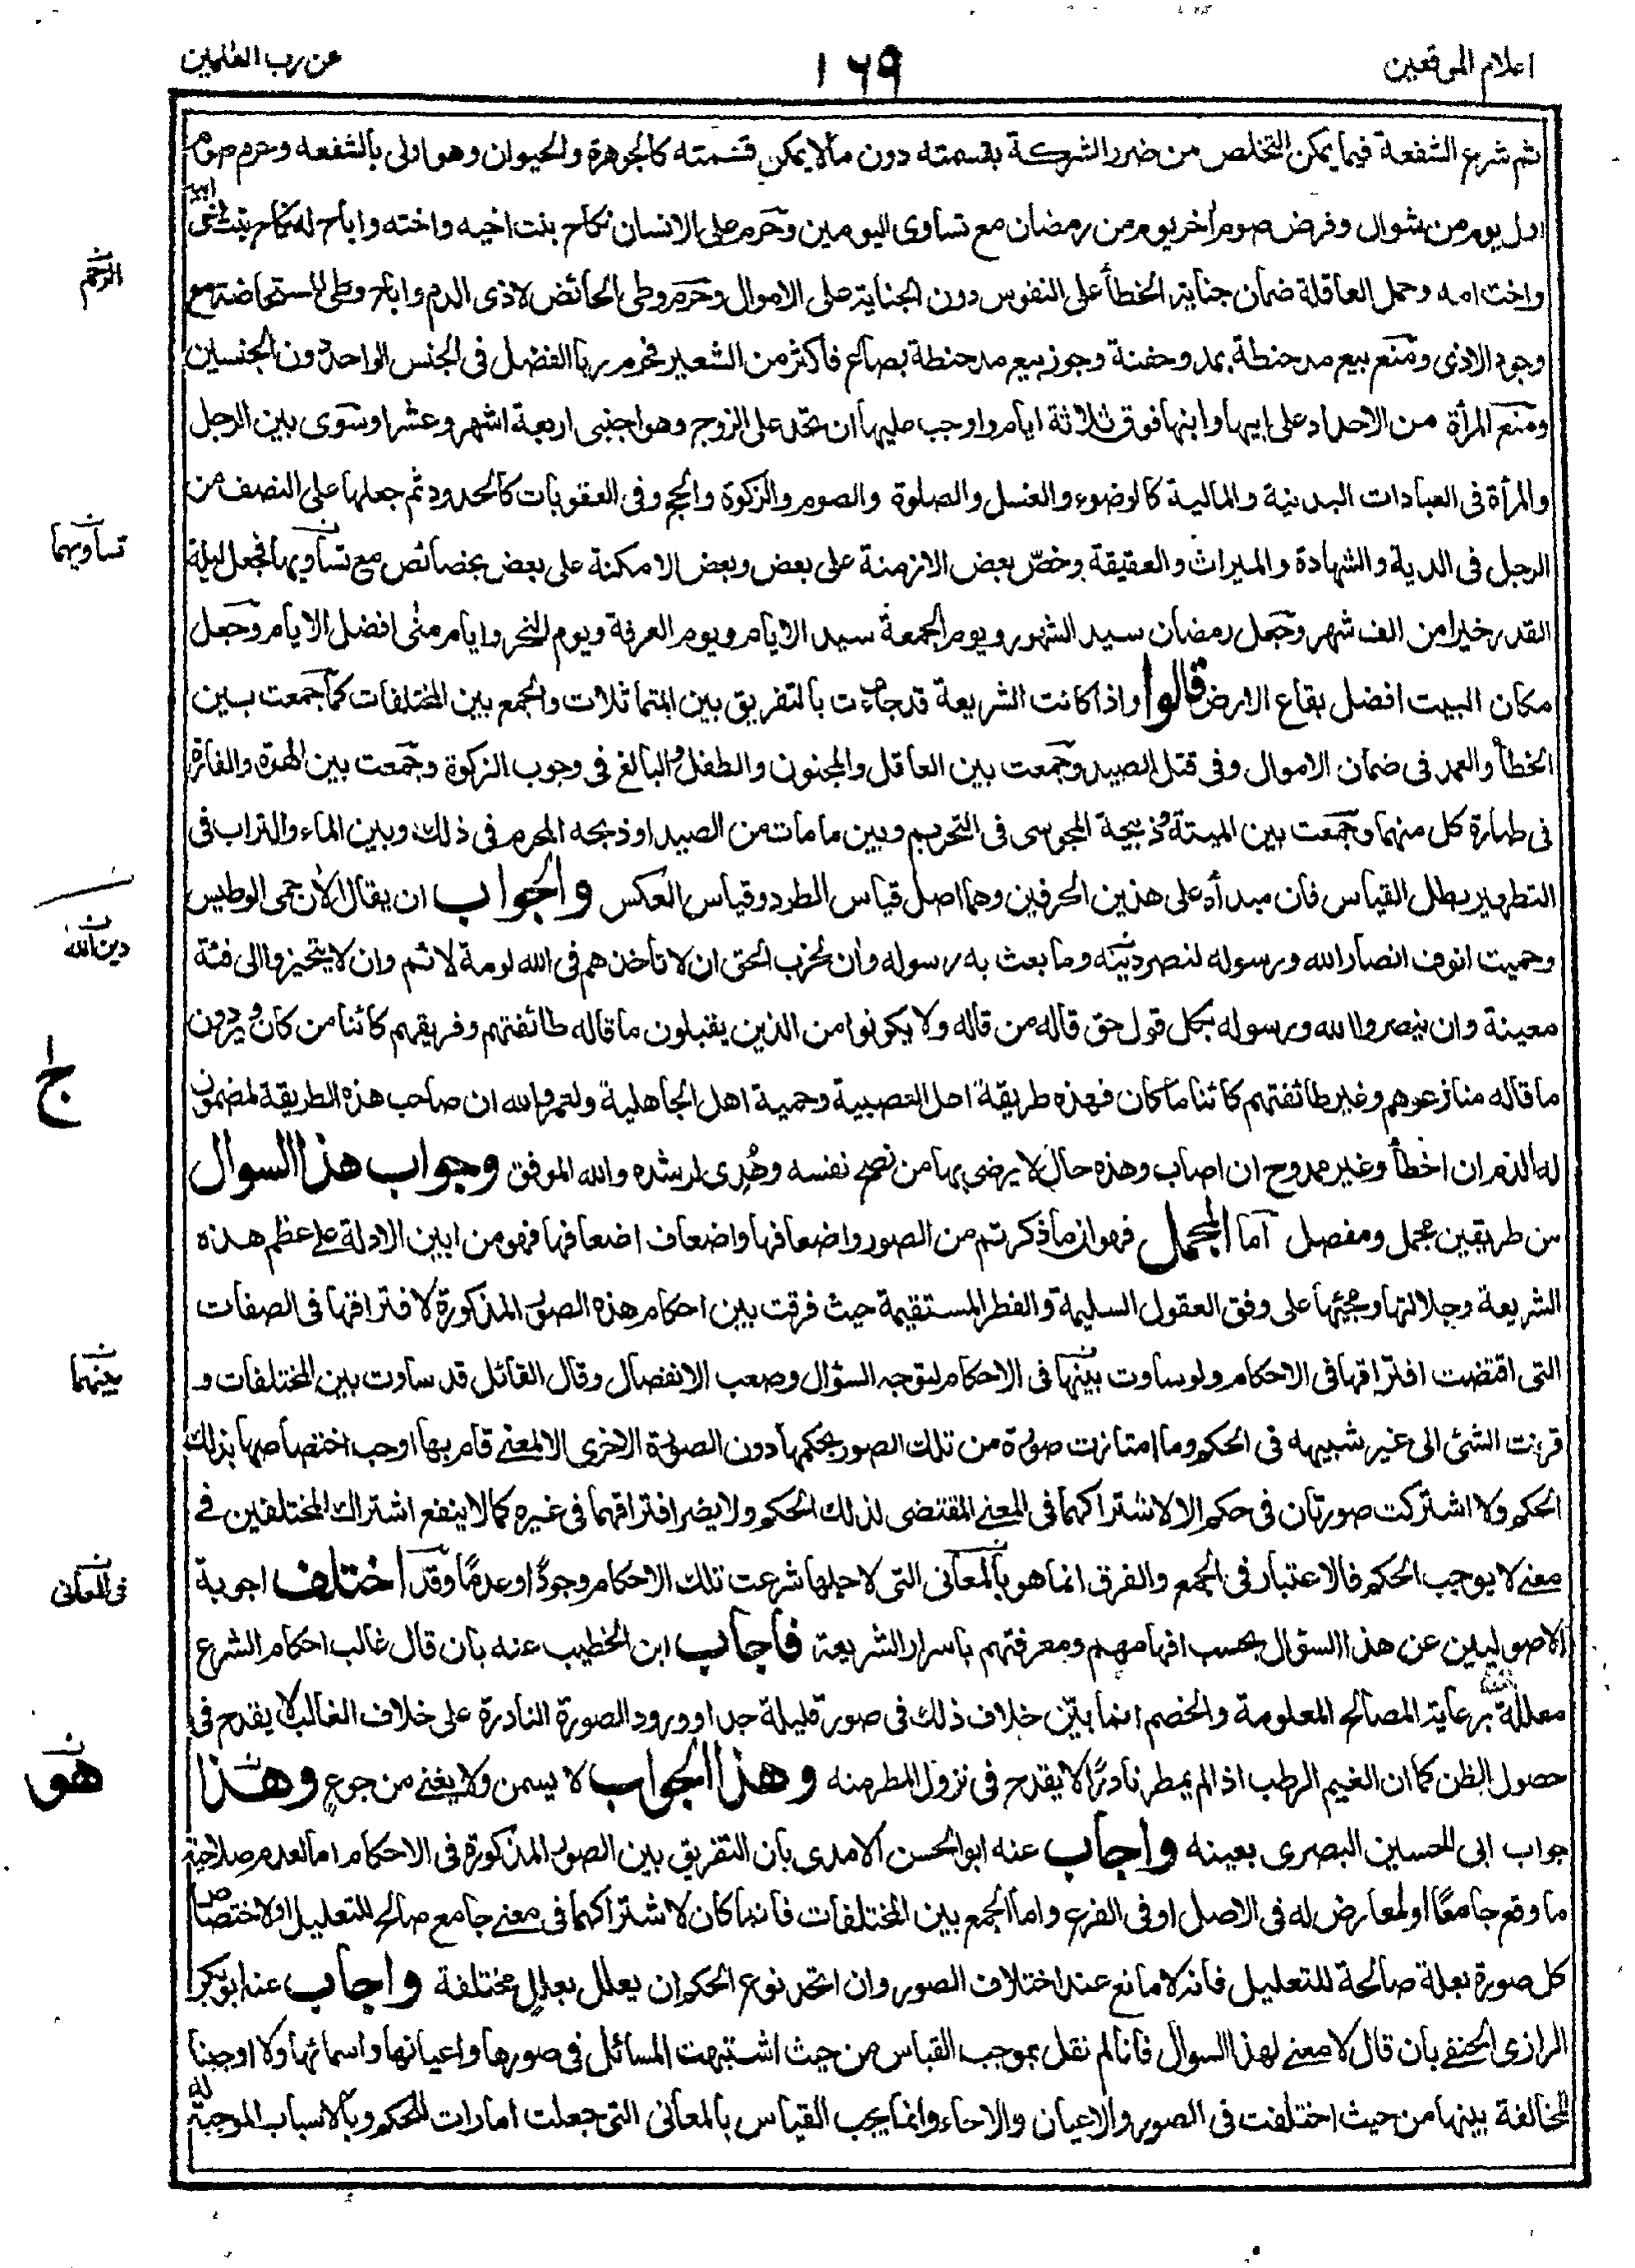 اعلام الموقعين
١٦٩
عن رب العلمين
ثم شرع الشفعة فيما يمكن التخلص من ضرر الشركة بقسمته دون مالا يمكن قسمته كالجوهرة والحيوان وهو اولى بالشفعه وحرم صوم
اول يوم من شوال وفرض صوم آخر يوم من رمضان مع تساوى اليومين وحرم على الانسان نكاح بنت اخيه واخته واباح له نكاح بنت اخى ابيه
واخت امه وحمل العاقلة ضمان جناية الخطأ على النفوس دون الجناية على الاموال وحرم وطى الحائض لاذى الدم واباح وطى المستحاضة مع
الرحم
وجود الاذى ومنع بيع مد حنطة بمد وحفنة وجوز بيع مد حنطة بصاع فأكثر من الشعير فحرم ربا الفضل فى الجنس الواحد دون الجنسين
ومنع المرأة من الاحداد على ابيها وابنها فوق ثلاثة ايام واوجب عليها ان تحد على الزوج وهو اجنبى اربعة اشهر وعشرا وسوى بين الرجل
والمرأة فى العبادات البدنية والمالية كالوضوء والغسل والصلوة والصوم والزكوة والحج وفى العقوبات كالحدود ثم جعلها على النصف من
الرجل فى الدية والشهادة والميراث والعقيقة وخص بعض الازمنة على بعض وبعض الامكنة على بعض بخصائص مع تساويها فجعل ليلة
تساويهما
القدر خيرا من الف شهر وجعل رمضان سيد الشهور ويوم الجمعة سيد الايام ويوم العرفة ويوم النحر وايام منى افضل الايام وجعل
مكان البيت افضل بقاع الارض قالوا واذا كانت الشريعة قد جاءت بالتفريق بين المتماثلات والجمع بين المختلفات كما جمعت بين
الخطأ والعمد فى ضمان الاموال وفى قتل الصيد وجمعت بين العاقل والمجنون والطفل والبالغ فى وجوب الزكوة وجمعت بين الهرة والفارة
فى طهارة كل منهما وجمعت بين الميتة وذبيحة المجوسى فى التحريم وبين ما مات من الصيد او ذبحه المحرم فى ذلك وبين الماء والتراب فى
التطهير بطل القياس فان مبدأه على هذين الحرفين وهما اصل قياس الطرد وقياس العكس والجواب ان يقال الأن حمى الوطيس
وحميت انوف انصار الله ورسوله لنصر دينه وما بعث به رسوله وأن لحزب الحق ان لا تأخذهم فى الله لومة لائم وان لا يتحيزوا الى فئة
دين الله
معينة وان ينصروا الله ورسوله بكل قول حق قاله من قاله ولا يكونوا من الذين يقبلون ما قاله طائفتهم وفريقهم كائنا من كان ويردون
ما قاله منازعوهم وغير طائفتهم كائنا ما كان فهذه طريقة اهل العصبية وحمية اهل الجاهلية ولعمر الله ان صاحب هذه الطريقة لمضمون
ج ١
له الذم ان اخطأ وغير ممدوح ان اصاب وهذه حال لا يرضى بها من نصح نفسه وهُدِى لرشده والله الموفق وجواب هذا السوال
من طريقين مجمل ومفصل اما المجمل فهو ان ما ذكرتم من الصور واضعافها واضعاف اضعافها فهو من ابين الادلة على عظم هذه
الشريعة وجلالتها ومجيئها على وفق العقول السليمة والفطر المستقيمة حيث فرقت بين احكام هذه الصور المذكورة لافتراقها فى الصفات
التى اقتضت افتراقها فى الاحكام ولو ساوت بينها فى الاحكام لتوجه السؤال وصعب الانفصال وقال القائل قد ساوت بين المختلفات و
بينهما
قرنت الشئ الى غير شبيهه فى الحكم وما امتازت صورة من تلك الصور بحكمها دون الصورة الاخرى الا لمعنى قام بها اوجب اختصاصها بذلك
الحكم ولا اشتركت صورتان فى حكم الا لاشتراكهما فى المعنى المقتضى لذلك الحكم ولا يضر افتراقهما فى غيره كما لا ينفع اشتراك المختلفين فى
معنى لا يوجب الحكم فالاعتبار فى الجمع والفرق انما هو بالمعانى التى لاجلها شرعت تلك الاحكام وجودًا وعدمًا وقد اختلف اجوبة
فى المعانى
الاصوليين عن هذا السؤال بحسب افهامهم ومعرفتهم باسرار الشريعة فأجاب ابن الخطيب عنه بان قال غالب احكام الشرع
معللة برعاية المصالح المعلومة والخصم انما بيّن خلاف ذلك فى صور قليلة جدا وورود الصورة النادرة على خلاف الغالب لا يقدح فى
حصول الظن كما ان الغيم الرطب اذا لم يمطر نادرًا لا يقدح فى نزول المطر منه وهذا الجواب لا يسمن ولا يغنى من جوعٍ وهذا
هو
جواب ابى الحسين البصرى بعينه واجاب عنه ابو الحسن الامدى بأن التفريق بين الصور المذكورة فى الاحكام اما لعدم صلاحية
ما وقع جامعًا او لمعارض له فى الاصل او فى الفرع واما الجمع بين المختلفات فانما كان لاشتراكهما فى معنى جامع صالح للتعليل او لاختصاص
كل صورة بعلة صالحة للتعليل فانه لا مانع عند اختلاف الصور وان اتحد نوع الحكم ان يعلل بعلل مختلفة واجاب عنه ابو بكر
الرازى الحنفى بان قال لا معنى لهذا السوال فانا لم نقل بموجب القياس من حيث اشتبهت المسائل فى صورها واعيانها واسمائها ولا اوجبنا
المخالفة بينها من حيث اختلفت فى الصور والاعيان والاسماء وانما يجب القياس بالمعانى التى جعلت امارات للحكم وبالاسباب الموجبة له